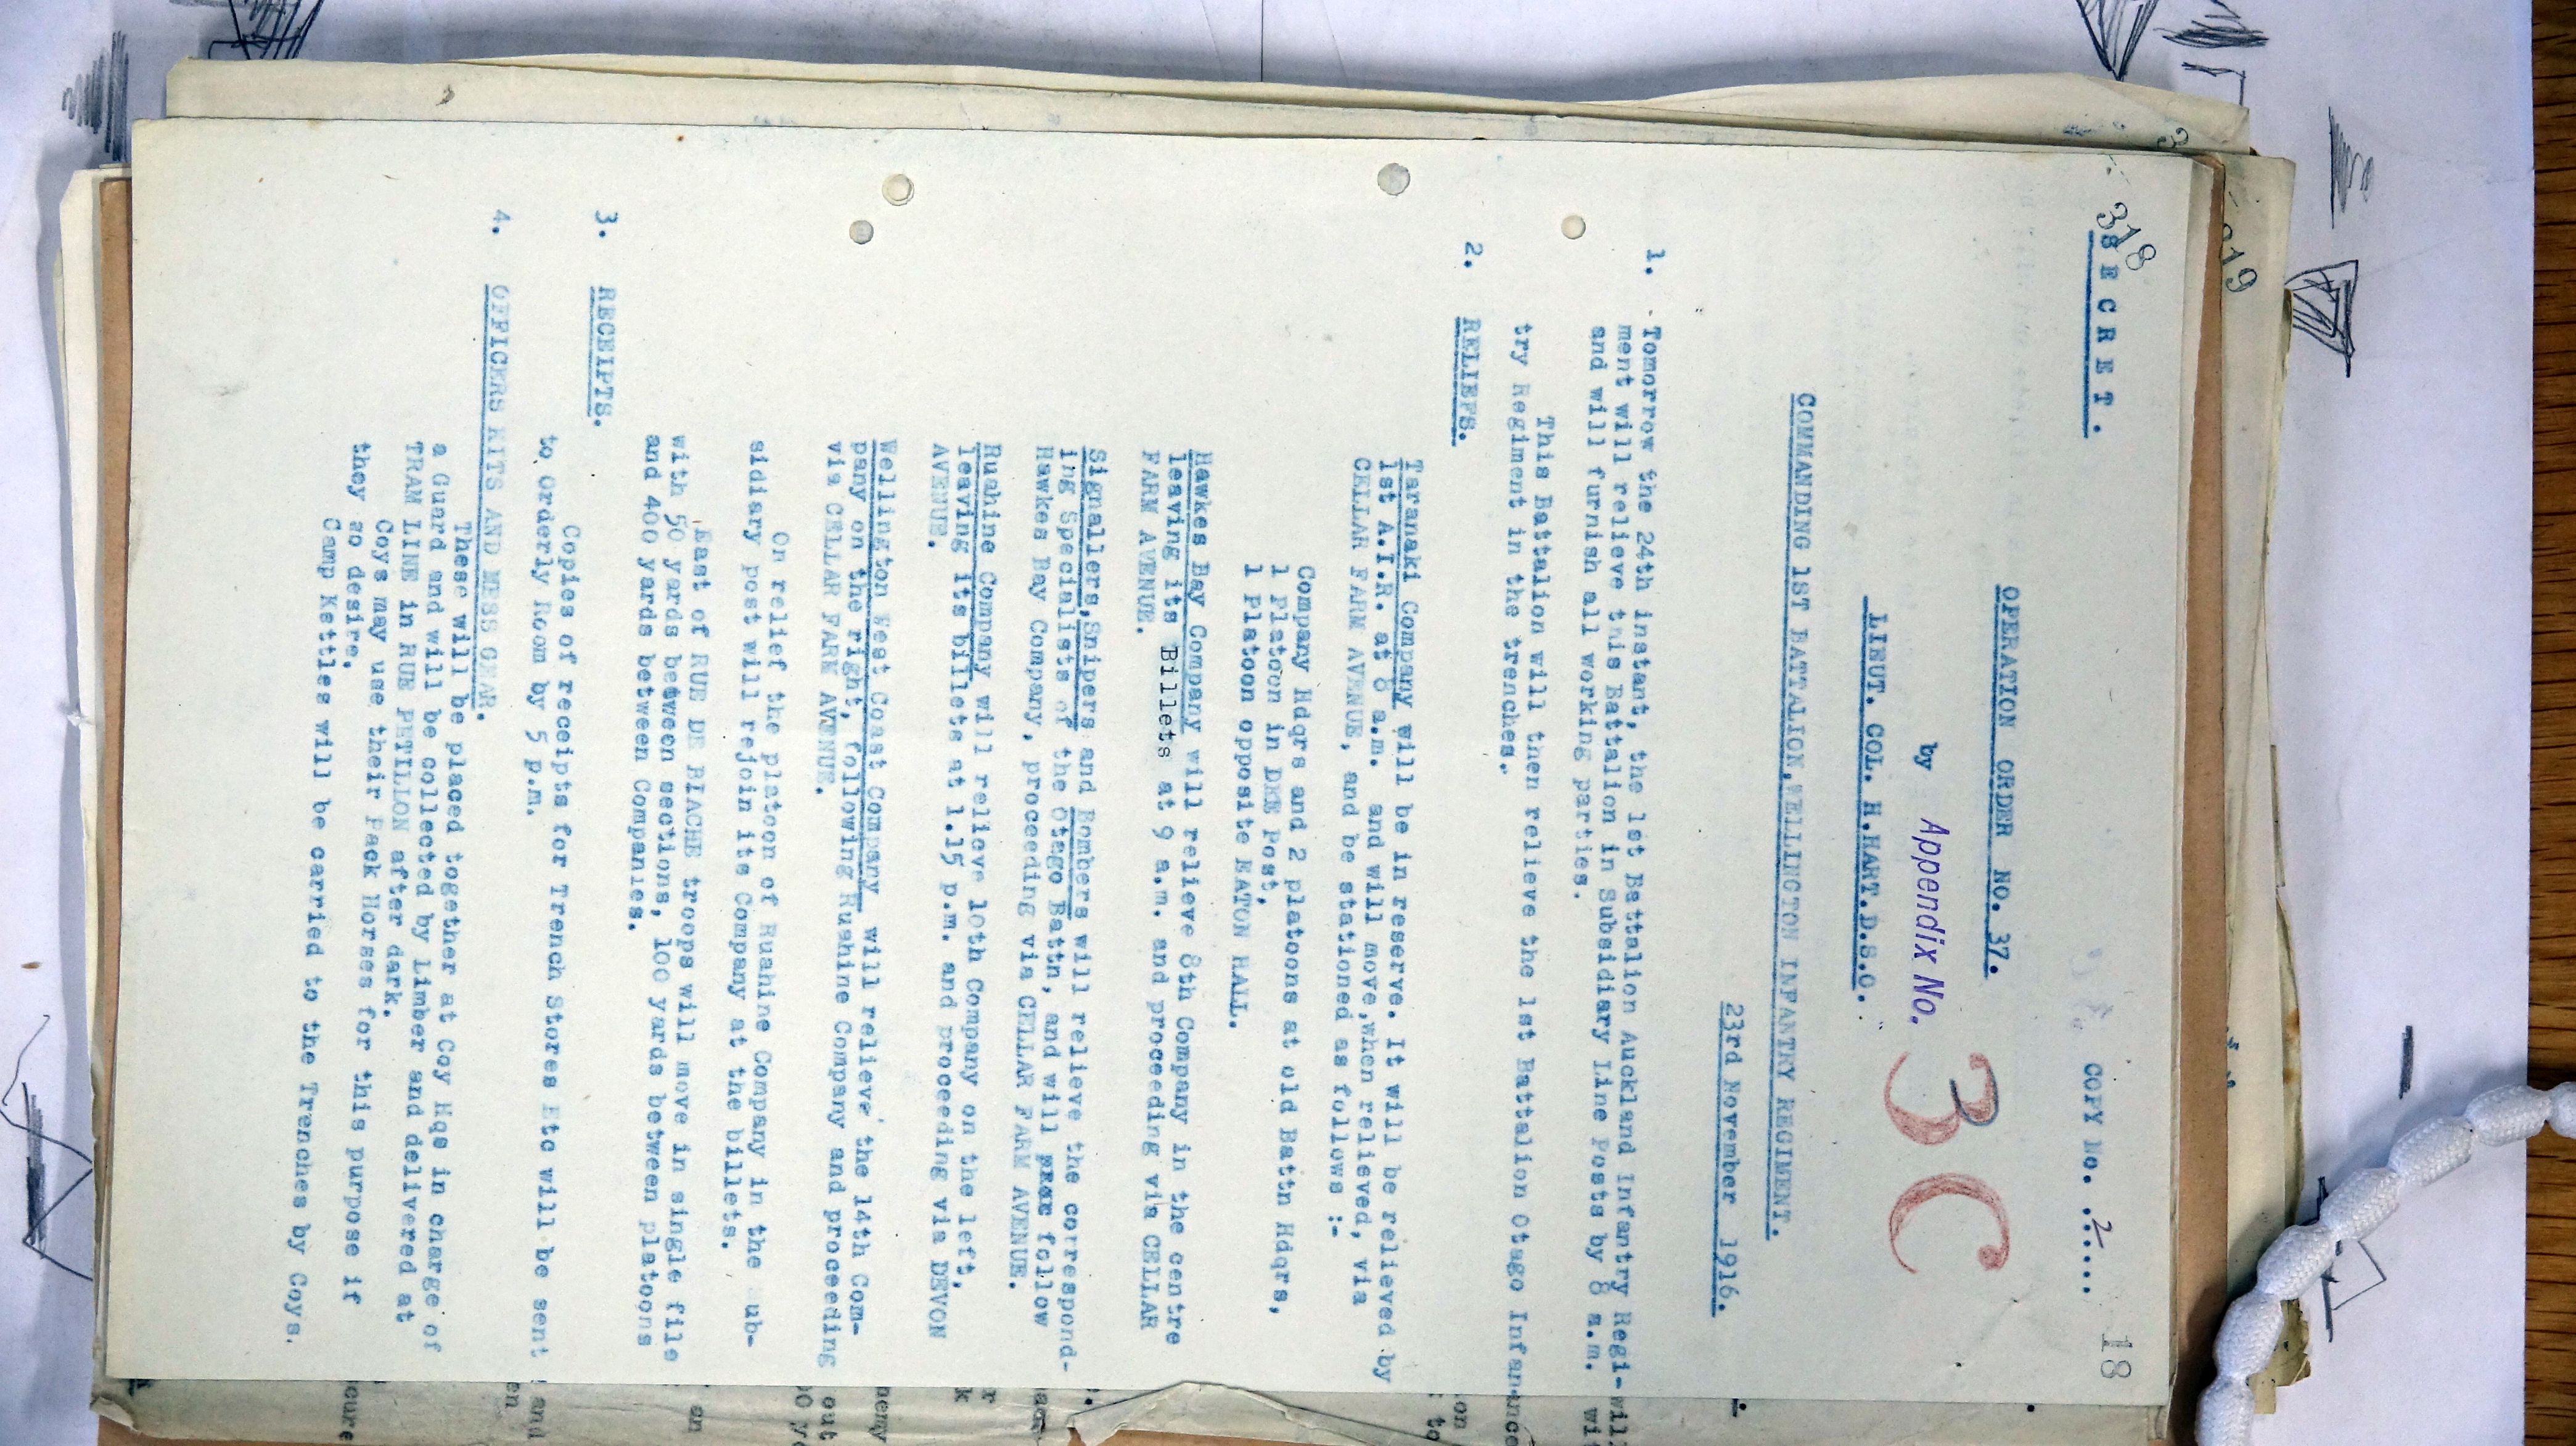 318
18
SECRET.
COPY No. ..2....
OPERATION ORDER NO. 37.
by Appendix No. 3C
LIEUT. COL. H.HART.D.S.O.
COMMANDING 1ST BATTALION,WELLINGTON INFANTRY REGIMENT.
23rd November 1916.
1. Tomorrow the 24th instant, the 1st Battalion Auckland Infantry Regi-
ment will relieve this Battalion in Subsidiary Line Posts by 8 a.m.
and will furnish all working parties.
This Battalion will then relieve the 1st Battalion Otago Infan-
try Regiment in the trenches.
2. RELIEFS.
Taranaki Company will be in reserve. It will be relieved by
1st A.I.R. at 8 a.m. and will move,when relieved, via
CELLAR FARM AVENUE, and be stationed as follows :-
Company Hdqrs and 2 platoons at old Battn Hdqrs,
1 Platoon in DEE Post,
1 Platoon opposite EATON HALL.
Hawkes Bay Company will relieve 8th Company in the centre
leaving its Billets at 9 a.m. and proceeding via CELLAR
FARM AVENUE.
Signallers,Snipers and Bombers will relieve the correspond-
ing Specialists of the Otago Battn, and will follow
Hawkes Bay Company, proceeding via CELLAR FARM AVENUE.
Ruahine Company will relieve 10th Company on the left,
leaving its billets at 1.15 p.m. and proceeding via DEVON
AVENUE.
Wellington West Coast Company will relieve the 14th Com-
pany on the right, following Ruahine Company and proceeding
via CELLAR FARM AVENUE.
On relief the platoon of Ruahine Company in the sub-
sidiary post will rejoin its Company at the billets.
East of RUE DE BIACHE troops will move in single file
with 50 yards between sections, 100 yards between platoons
and 400 yards between Companies.
3. RECEIPTS.
Copies of receipts for Trench Stores Etc will be sent
to Orderly Room by 5 p.m.
4. OFFICERS KITS AND MESS GEAR.
These will be placed together at Coy Hqs in charge of
a Guard and will be collected by Limber and delivered at
TRAM LINE in RUE PETILLON after dark.
Coys may use their Pack Horses for this purpose if
they so desire.
Camp Kettles will be carried to the Trenches by Coys.